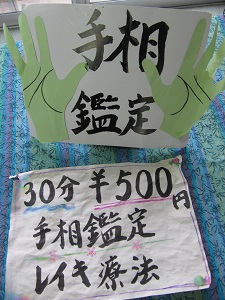 手相
鑑定
30分 ¥500円
手相鑑定
レイキ療法